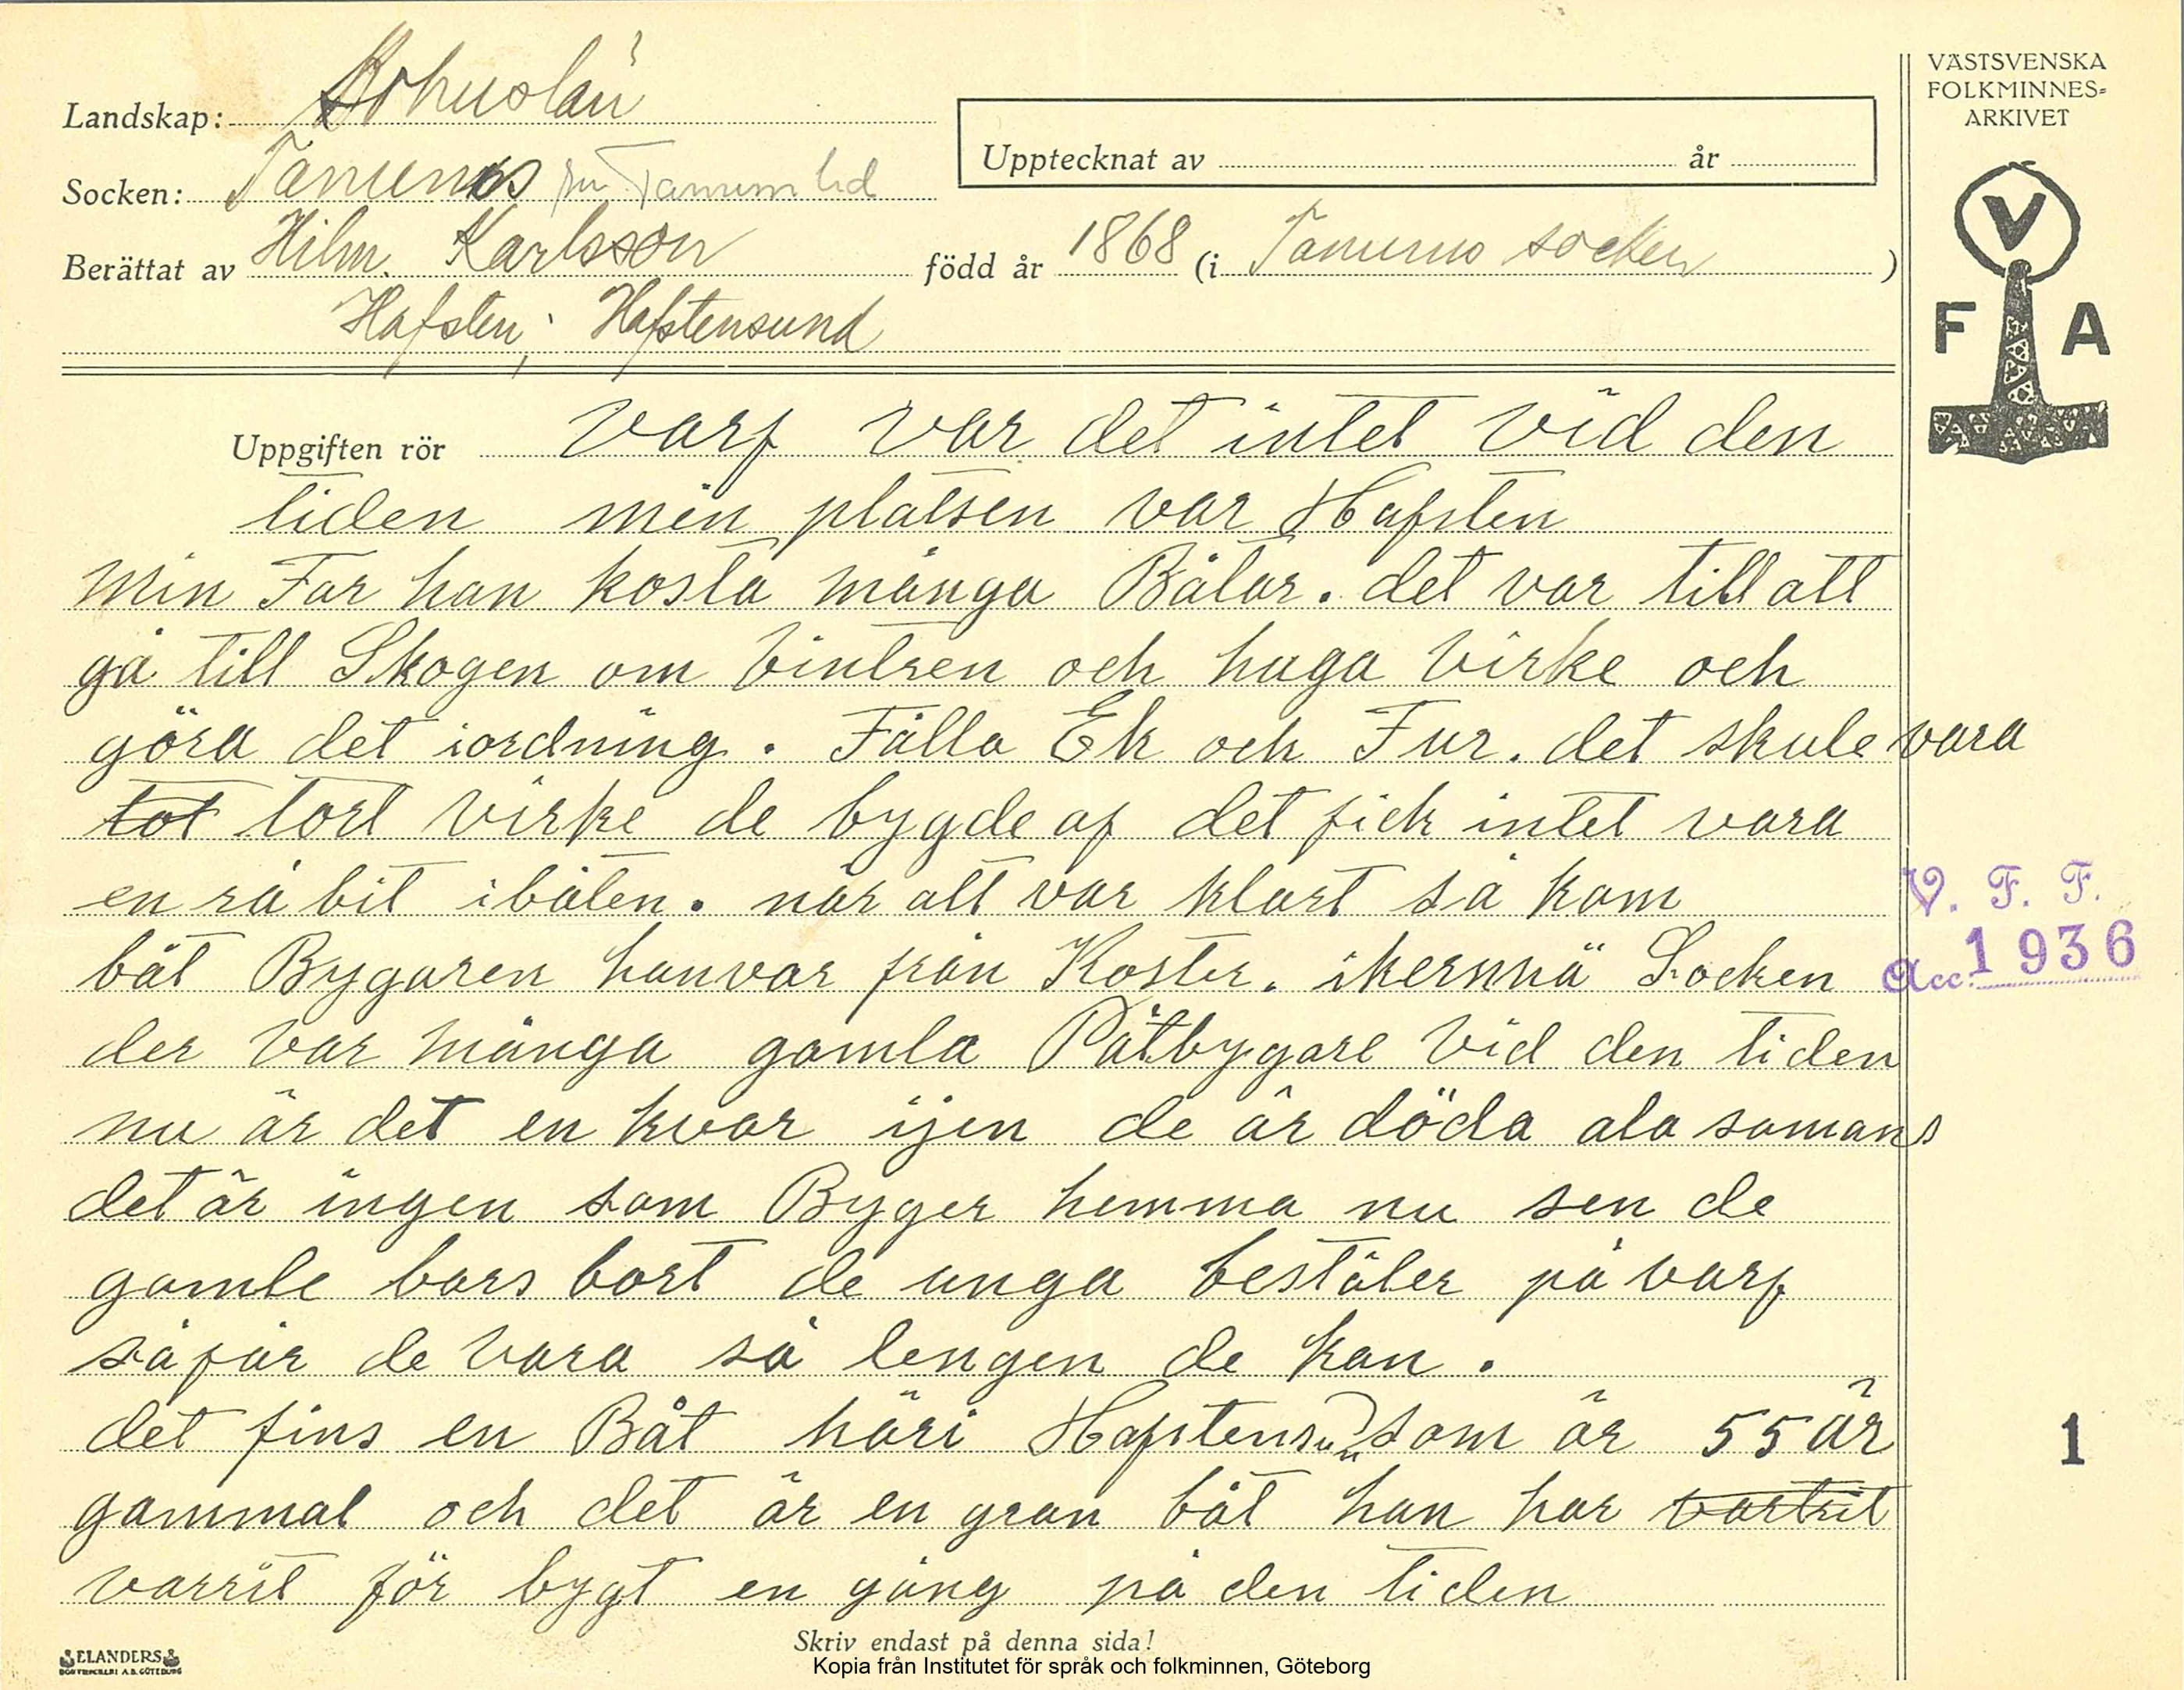 Landskap: Bohuslän
Socken: Tanums Tanum hd
Upptecknat av år
Berättat av Hilm. Karlsson född år 1868 (i Tanums socken )
Hafsten; Hafstensund
VÄSTSVENSKA
FOLKMINNES-
ARKIVET
V
F A
Uppgiften rör varf var det intet vid den
tiden min platsen var Hafsten
Min Far han kosta många Båtar. det var till att
gå till Skogen om Vintren och huga Virke och
göra det iordning. Fälla Ek och Fur. det skule vara
tot tort virke de bygde af det fick intet vara
en rå bit ibåten. när alt var klart så kom
båt Bygaren hanvar från Koster. ikernnä Socken
der var många gamla Båtbygare Vid den tiden
nu är det en kvar ijen de är döda ala samans
det är ingen som Byger hemma nu sen de
gamle bars bort de unga bestäler på varf
så får de vara så lengen de kan.
det fins en Båt häri Hafstensun som är 55 år
gammal och det är en gran båt han har vartrit
varrit för bygt en gång på den tiden
V. F. F.
Acc. 1936
1
ELANDERS
BOKTRYCKERI A.B. GÖTEBORG
Skriv endast på denna sida!
Kopia från Institutet för språk och folkminnen, Göteborg